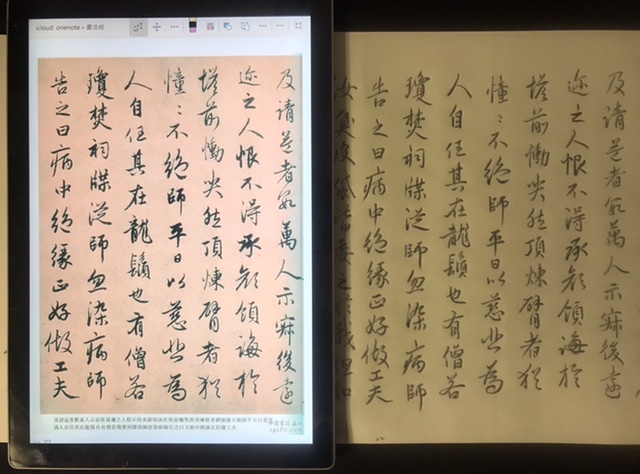 icloud onenote • 書法組
及請益者數萬人示寂後遠
近之人恨不得承顏領誨於
塔前慟哭然頂煉臂者猶
憧憧不絕師平日以慈悲為
人自任其在龍鬚也有僧若
瓊焚祠牒從師忽染病師
告之曰病中絕緣正好做工夫
及請益者數萬人示寂後遠
近之人恨不得承顏領誨於
塔前慟哭然頂煉臂者猶
憧憧不絕師平日以慈悲為
人自任其在龍鬚也有僧若
瓊焚祠牒從師忽染病師
告之曰病中絕緣正好做工夫